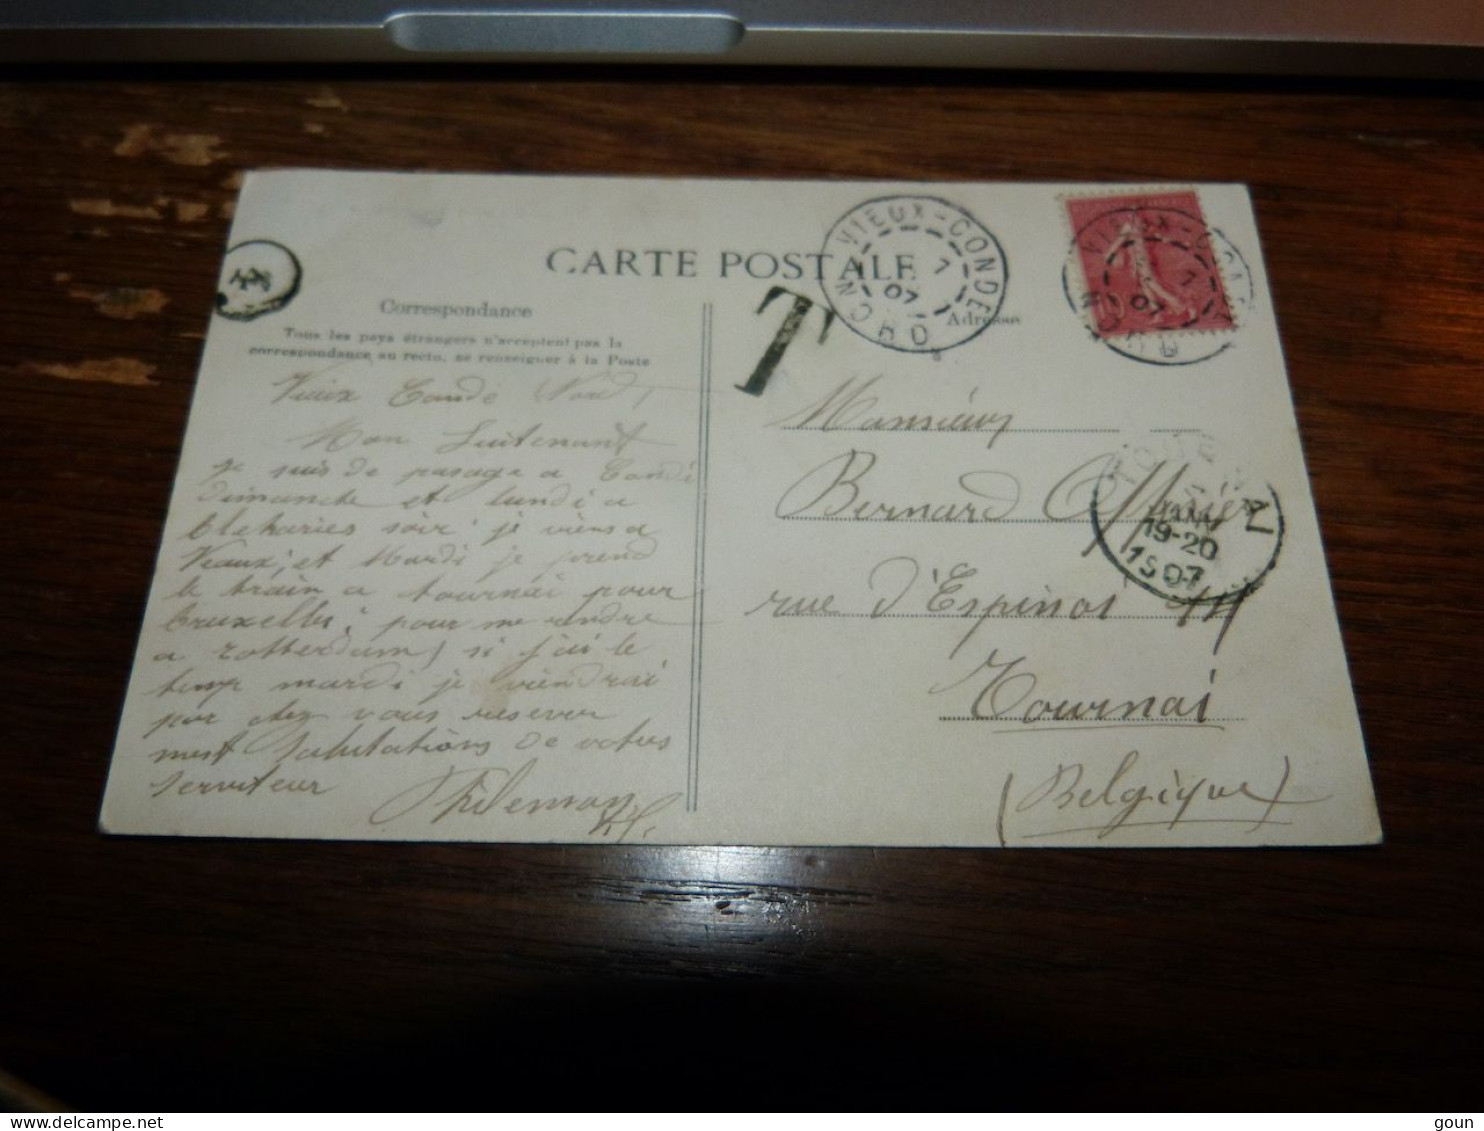 CARTE POSTALE
Correspondance
Tous les pays étrangers n'acceptent pas la
correspondance au recto, se renseigner à la Poste
Adresse
VIEUX-CONDÉ
NORD
7
07
T
VIEUX-CONDÉ
NORD
7
07
TOURNAI
19-20
1907
Vieux Condé Nord,
Mon Luitenant
je suis de pasage a Condé
dimanche et lundi a
bleharies soir je viens a
Vieux; et Mardi je prend
le train a tournai pour
bruxelles; pour me rendre
a rotterdam, si j'ai le
temp mardi je viendrai
par chez vous recever
mest salutations de votres
serviteur
Philemon
Monsieur
Bernard
rue d'Espinoi
Tournai
(Belgique)
goun